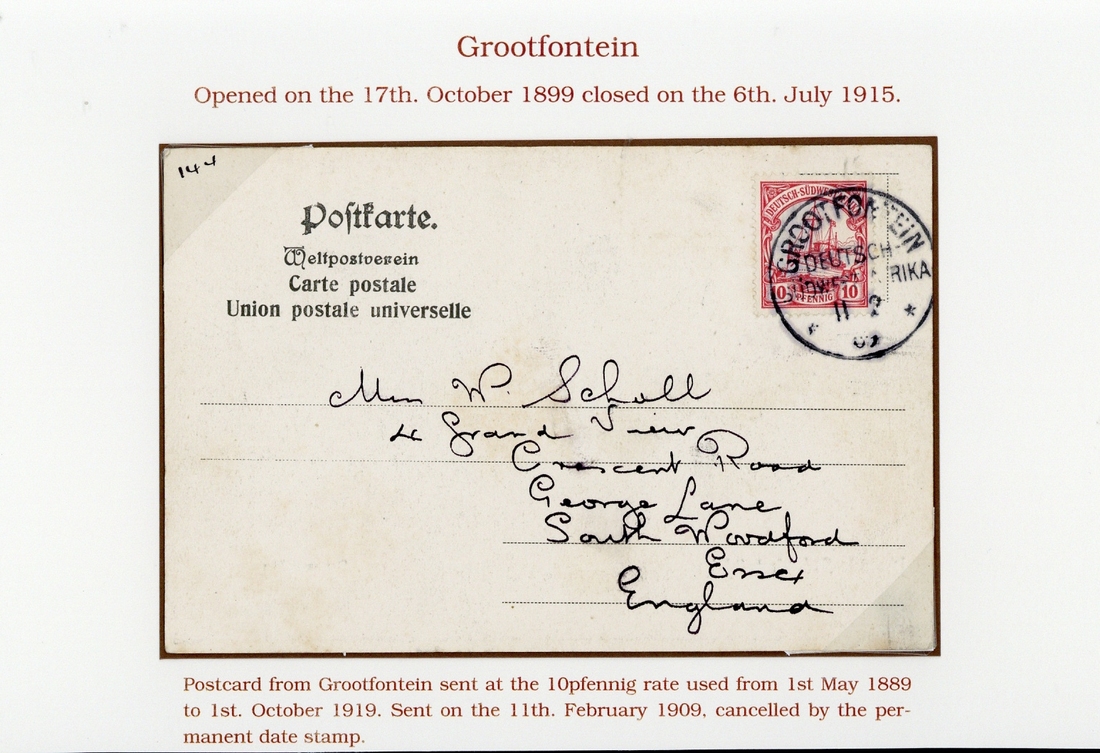 Grootfontein
Opened on the 17th. October 1899 closed on the 6th. July 1915.
144
Postkarte.
Weltpostverein
Carte postale
Union postale universelle
DEUTSCH-SÜDWEST
10 PFENNIG 10
GROOTFONTEIN
DEUTSCH-
SÜDWESTAFRIKA
11 2
09
Miss W. Scholl
4 Grand View
Crescent Road
George Lane
South Woodford
Essex
England
Postcard from Grootfontein sent at the 10pfennig rate used from 1st May 1889
to 1st. October 1919. Sent on the 11th. February 1909, cancelled by the per-
manent date stamp.